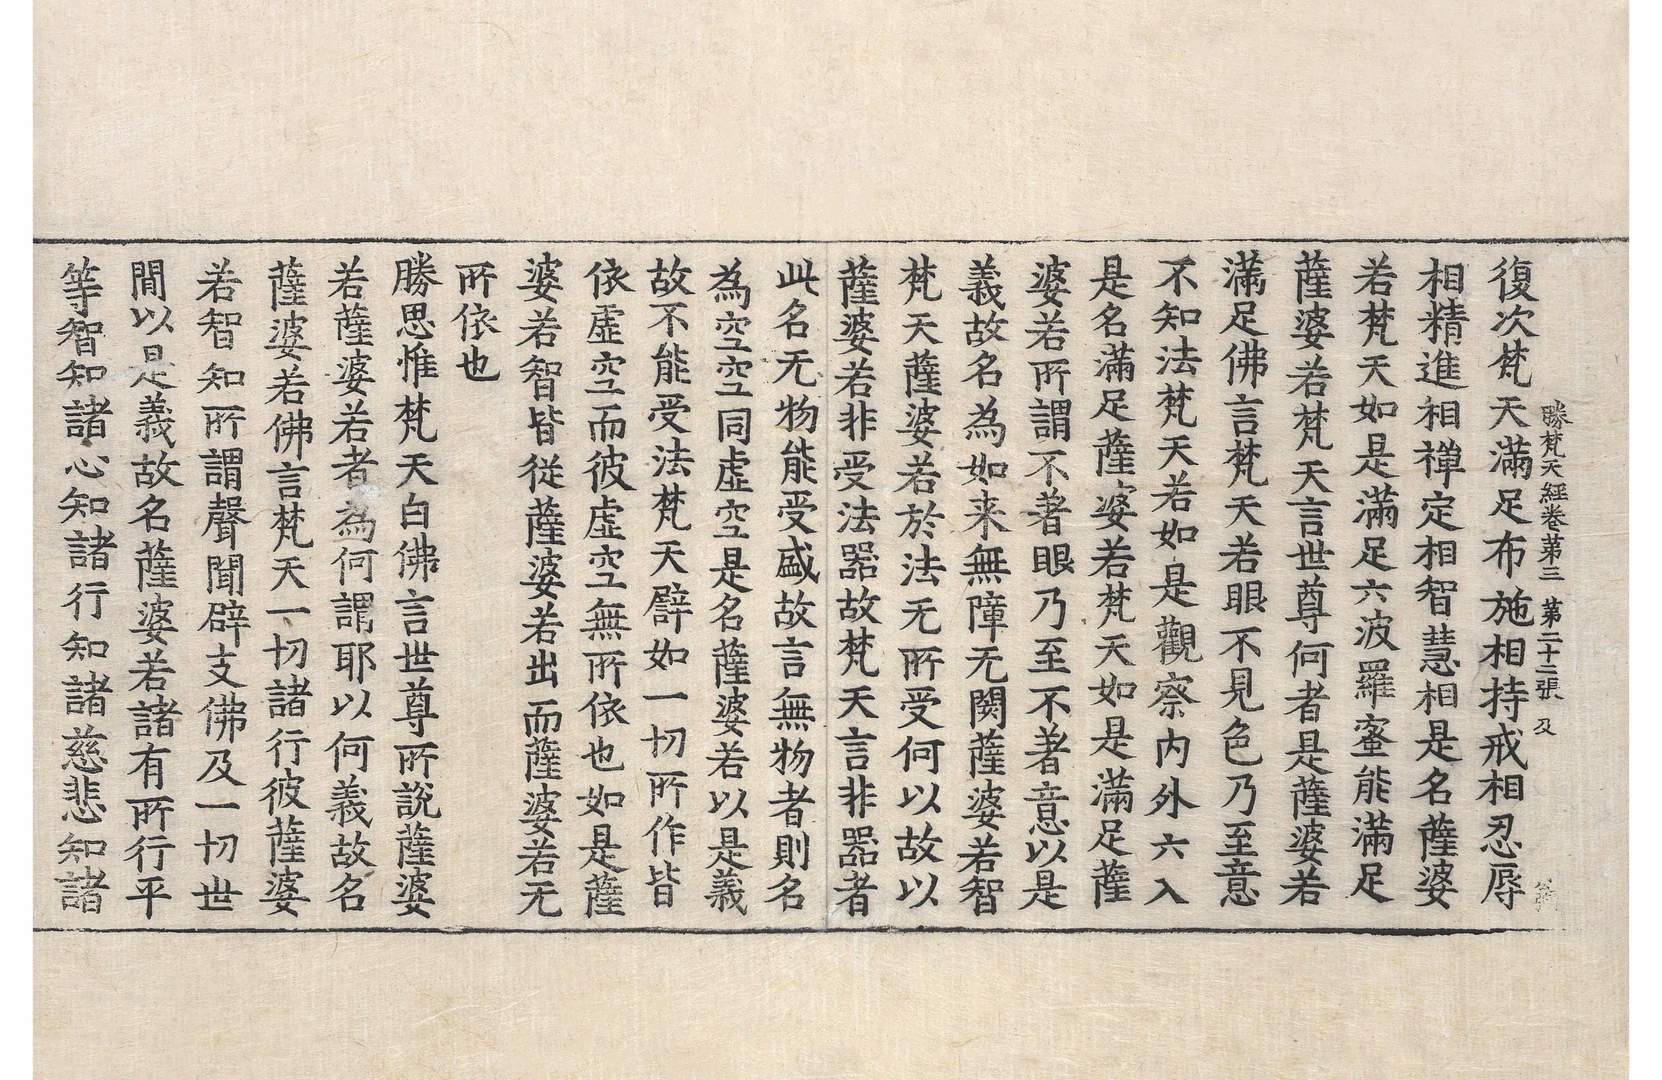 勝梵天經卷第三 第二十二張 及
復次梵天滿足布施相持戒相忍辱
相精進相禪定相智慧相是名薩婆
若梵天如是滿足六波羅蜜能滿足
薩婆若梵天言世尊何者是薩婆若
滿足佛言梵天若眼不見色乃至意
不知法梵天若如是觀察内外六入
是名滿足薩婆若梵天如是滿足薩
婆若所謂不著眼乃至不著意以是
義故名為如来無障无閡薩婆若智
梵天薩婆若於法无所受何以故以
薩婆若非受法器故梵天言非器者
此名无物能受盛故言無物者則名
為空空同虛空是名薩婆若以是義
故不能受法梵天譬如一切所作皆
依虛空而彼虛空無所依也如是薩
婆若智皆從薩婆若出而薩婆若无
所依也
勝思惟梵天白佛言世尊所說薩婆
若薩婆若者為何謂耶以何義故名
薩婆若佛言梵天一切諸行彼薩婆
若智知所謂聲聞辟支佛及一切世
間以是義故名薩婆若諸有所行平
等智知諸心知諸行知諸慈悲知諸